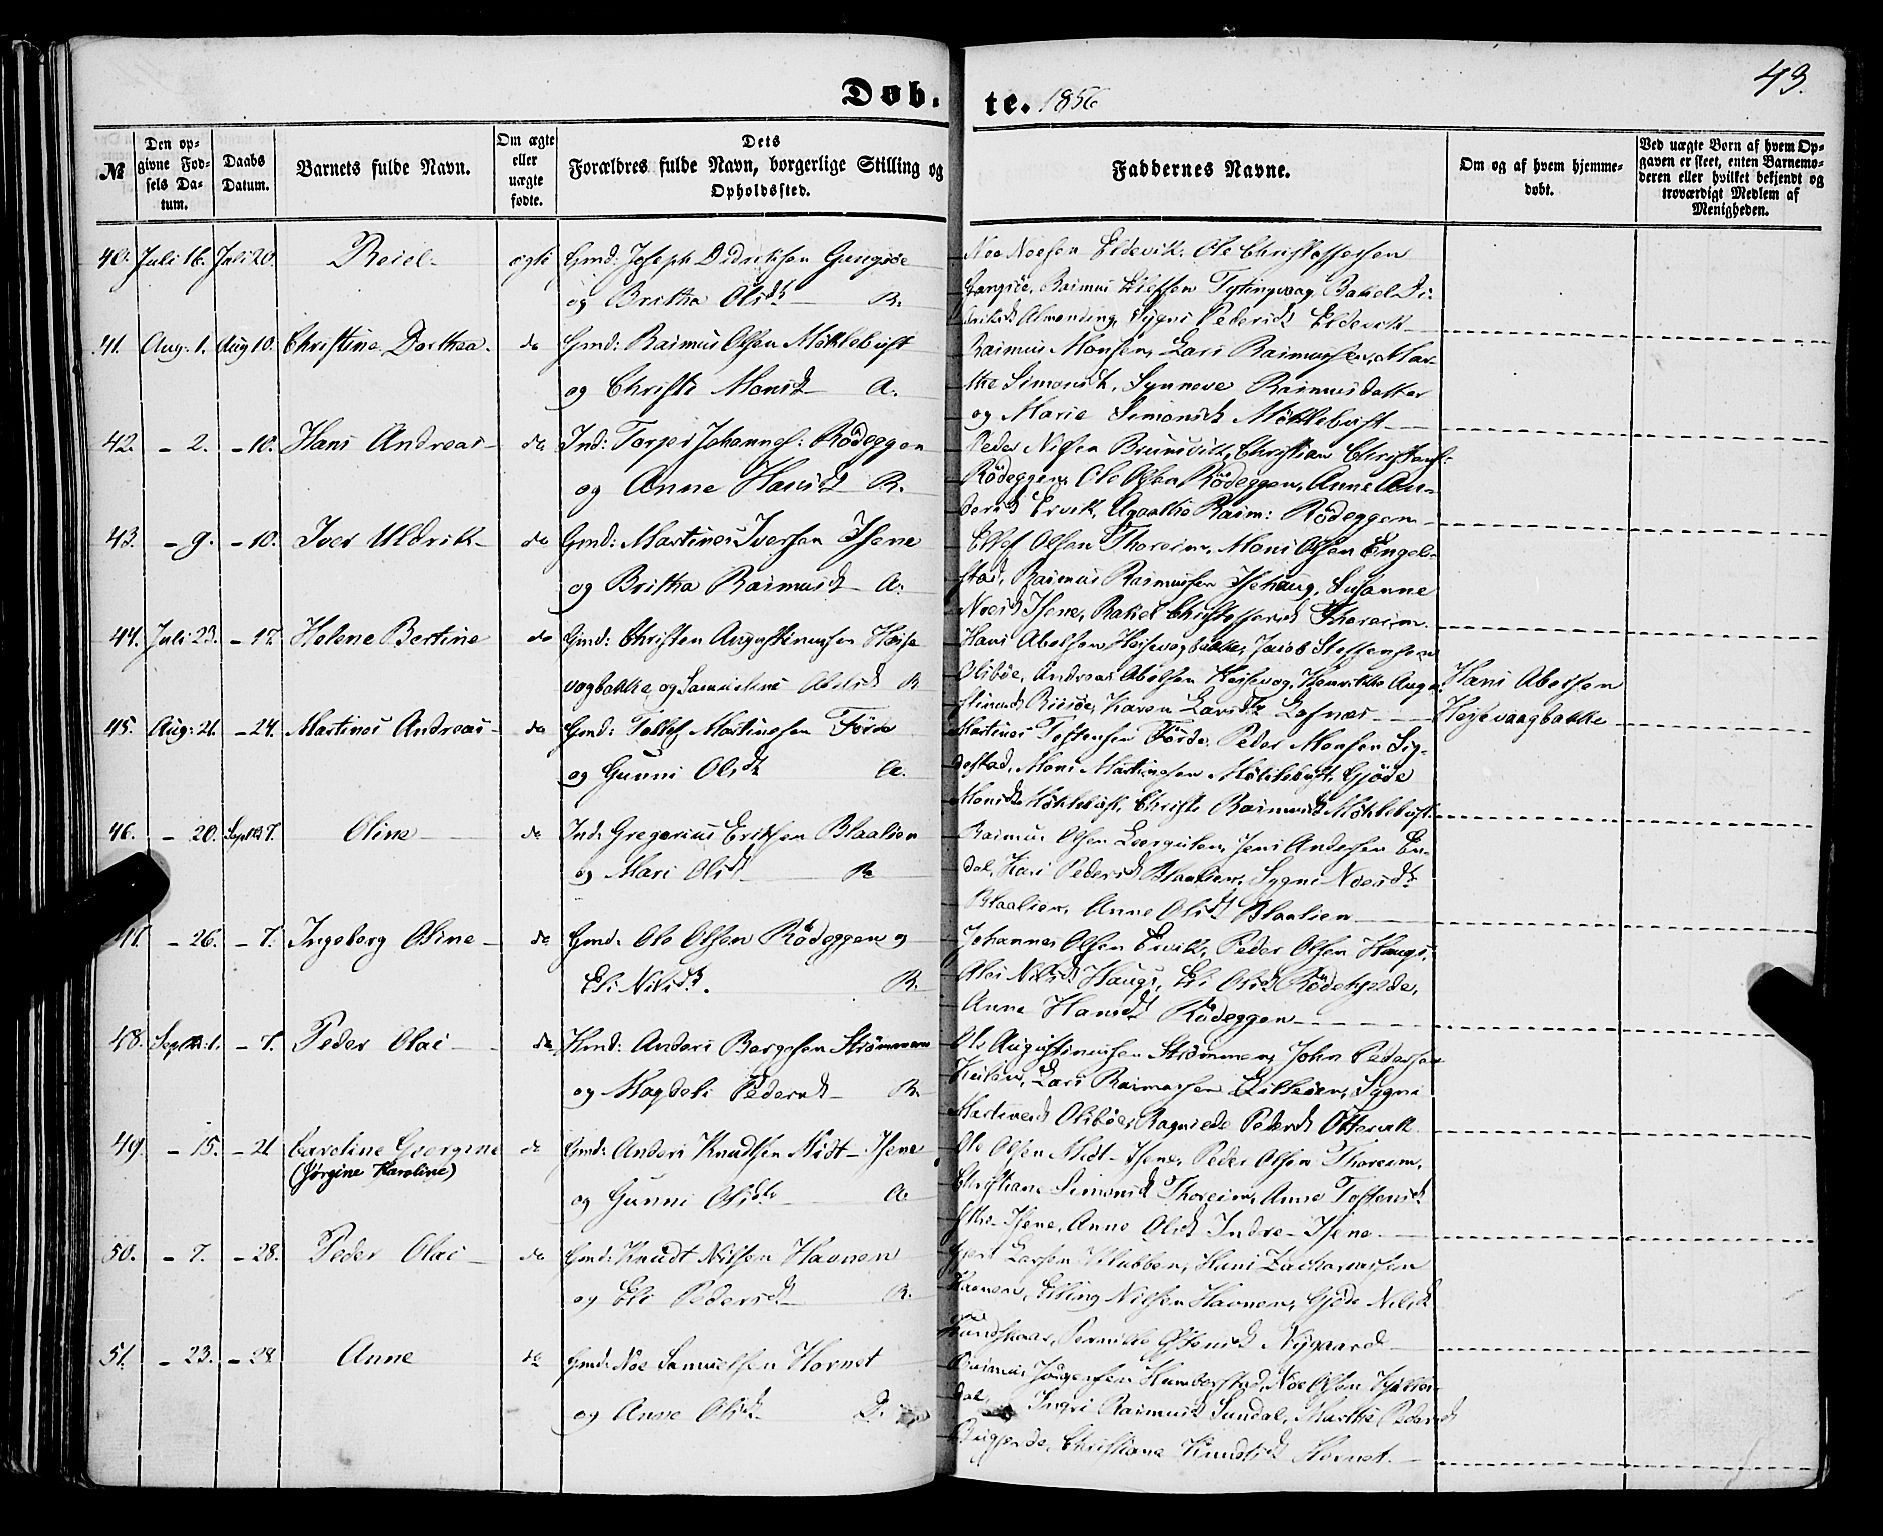 Døb. te. 1856
43.
№
Den opgivne Fødsels Datum.
Daabs Datum.
Barnets fulde Navn.
Om ægte eller uægte fødte.
Dets Forældres fulde Navn, borgerlige Stilling og Opholdssted.
Faddernes Navne.
Om og af hvem hjemmedøbt.
Ved uægte Børn af hvem Opgaven er skeet, enten Barnemoderen eller hvilket bekjendt og troværdigt Medlem af Menigheden.
40. Juli 16. Juli 20. ægte Gmd: Joseph Didriksen
og Britha Olsdt B.
Noe Noesen Eldevik, Ole Christoffersen
Rasmus Tytingvaag, Rakel Di-
driksdt Almending, Sygni Pedersdt Eldevik
41. Aug. 1. Aug 10. Christine Dorthea. do Gmd: Rasmus Olsen Möklebust
og Christi Monsdt A.
Rasmus Monsen, Lars Rasmussen, Mar-
the Simonsdt, Synneve Rasmusdatter
og Marie Simonsdt Möklebust
42. - 2. - 10. Hans Andreas do Ind: Torger Johannes: Rödeggen
og Anne Hansdt B.
Peder Nilsen Brunsvik, Christian Christens:
Rödeggen, Ole Olsen Rödeggen, Anne An-
dersdt Ervik, Agathe Rasm: Rödeggen
43. - 9. - 10. Iver Uldrik do Gmd: Martinus Iversen Isene
og Britha Rasmusdt A.
Ellef Olsen Thoreim, Mons Olsen Engel-
stad, Rasmus Rasmussen Isehaug, Susanne
Noesdt Isene, Rakel Christoffersdt Thoreim
44. Juli 23. - 17. Helene Bertine do Gmd: Christen Augustinussen Heise
vogbakke og Samueline Abelsdt B
Hans Abelsen Heisevogbakke, Jacob Steffensen
Olsböe, Andreas Abelsen Heisevog, Henrikke Augu-
stinusdt Risöe, Karen Larsdtr Lefnæs
Hans Abelsen
Heisevaagbakke
45. Aug: 21. - 24. Martinus Andreas do Gmd: Tollef Martinusen Förde
og Gunni Olsdtr A.
Martinus Tostensen Förde, Peder Monsen Sig-
destad, Mons Martinusen Möklebust, Gjöde
Monsdtr Möklebust, Christi Rasmusdt Möklebust
46. - 20. Septbr 7. Oline do Ind: Gregorius Eriksen Blaalien
og Mari Olsdt B
Rasmus Olsen Leergulen, Jens Andersen En-
dal, Kari Pedersdt Blaalien, Sygni Noesdtr
Blaalien, Anne Olsdt Blaalien
47. - 26. - 7. Ingeborg Oline do Gmd: Ole Olsen Rödeggen og
Eli Nilsdtr. B.
Johannes Olsen Ervik, Peder Olsen Haugs,
Nilsdt Haugs, Eli Olsdt Rödekjelde,
Anne Hansdt Rödeggen
48. Septbr: 1. - 7. Peder Olai do Hmd: Anders Börgesen Strömmen
og Magdeli Pedersdt B.
Ole Augustinussen Strömmen, John Pedersen
Lars Rasmussen Sygni
Martinusdt Olsböe, Ragnilde Pedersdt Otterek
49. - 15. - 21 Caroline Georgine do Gmd: Anders Knudtsen Midt-Isene
(Jörgine Karoline)
og Gunni Olsdtr A
Ole Olsen Midt-Isene, Peder Olsen Thoreim,
Christiane Simonsdt Thoreim, Anne Tostensdt
Isene, Anne Olsdt Indre-Isene
50. - 7. - 28. Peder Olai do Gmd: Knudt Nilsen Havnen
og Eli Pedersdt B.
Larsen Klubben, Hans Zachariassen
Havnen, Elling Nilsen Havnen, Gjöde Nilsdt
Nygaard
51. - 23. - 28. Anne do Gmd: Noe Samuelsen Hornet
og Anne Olsdt D.
Rasmus Jörgensen Humberstad, Noe Olsen Hjelten-
dal, Ingri Rasmusdt Sundal, Marthe Pedersdt
Christiane Knudtsdt Hornet